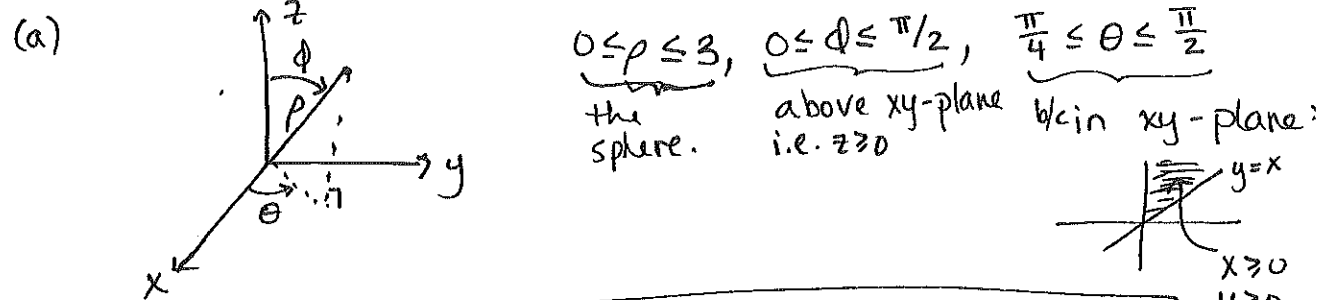 (a)
z
ϕ
ρ
y
θ
x
0≤ρ≤3, 0≤ϕ≤π/2, π/4 ≤ θ ≤ π/2
the sphere.
above xy-plane
i.e. z≥0
b/c in xy-plane:
y=x
x≥0
y≥0